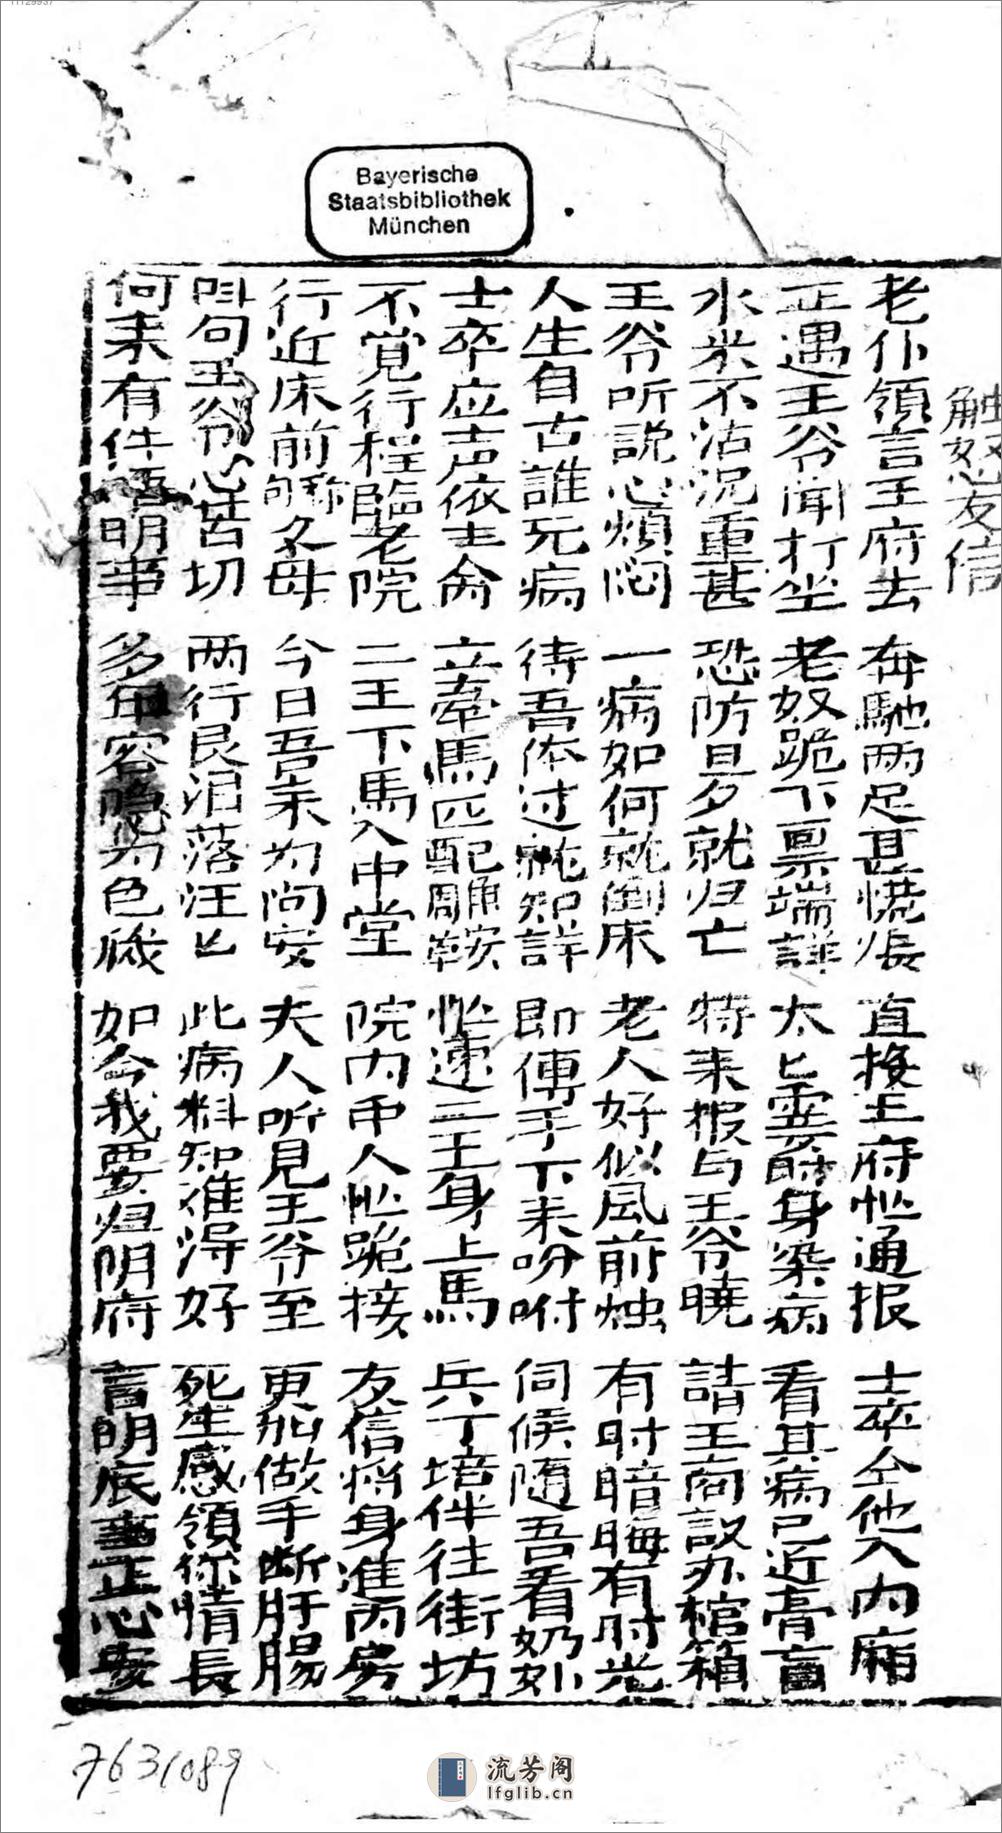 11129937
Bayerische
Staatsbibliothek
München
触怒友信
老仆領言王府去 奔馳両足甚慌張 直投王府忙通报 士卒仝他入内廂
正遇王爷闻打坐 老奴跪下禀端詳 太匕雲要時身染病 看其病已近膏盲
水米不沾况重甚 恐防旦夕就归亡 特耒报与王爷曉 請王商議办棺箱
王爷听説心煩悶 一病如何就倒床 老人好似风前烛 有时暗晦有时光
人生自古誰无病 待吾体过就知詳 即傳手下耒吩咐 伺候随吾看奶奶
士卒应声依主命 立牽馬匹配雕鞍 忙速二王身上馬 兵丁培伴往街坊
不覚行程臨老院 二王下馬入中堂 院内中人忙跪接 友信痟身准两房
行近床前嘶父母 今日吾耒为问安 夫人听見王爷至 更加做手断肝腸
叫句王爷心甚切 两行艮泪落汪匕 此病料知难淂好 死生感領你情長
何耒有件語明事 多年容隐为色藏 如今我要归阴府 言明底事正心安
763/089
流芳阁
lfglib.cn